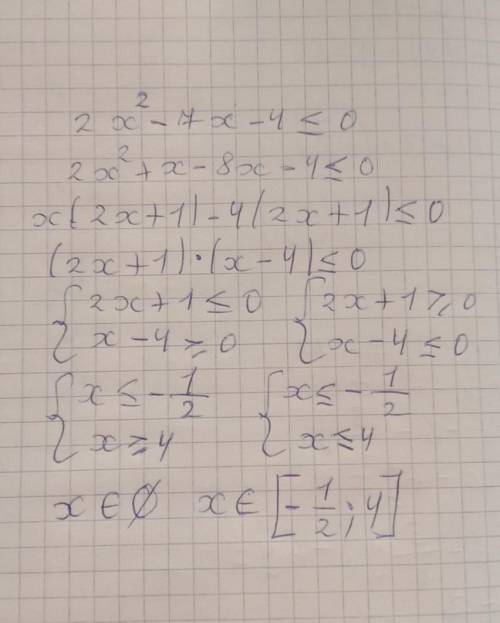 2x² - 7x - 4 ≤ 0
2x² + x - 8x - 4 ≤ 0
x(2x+1) - 4(2x+1) ≤ 0
(2x+1)·(x-4) ≤ 0
{ 2x+1 ≤ 0 { 2x+1 ≥ 0
{ x-4 ≥ 0 { x-4 ≤ 0
{ x ≤ -1/2 { x ≤ -1/2
{ x ≥ 4 { x ≤ 4
x ∈ ∅ x ∈ [-1/2; 4]